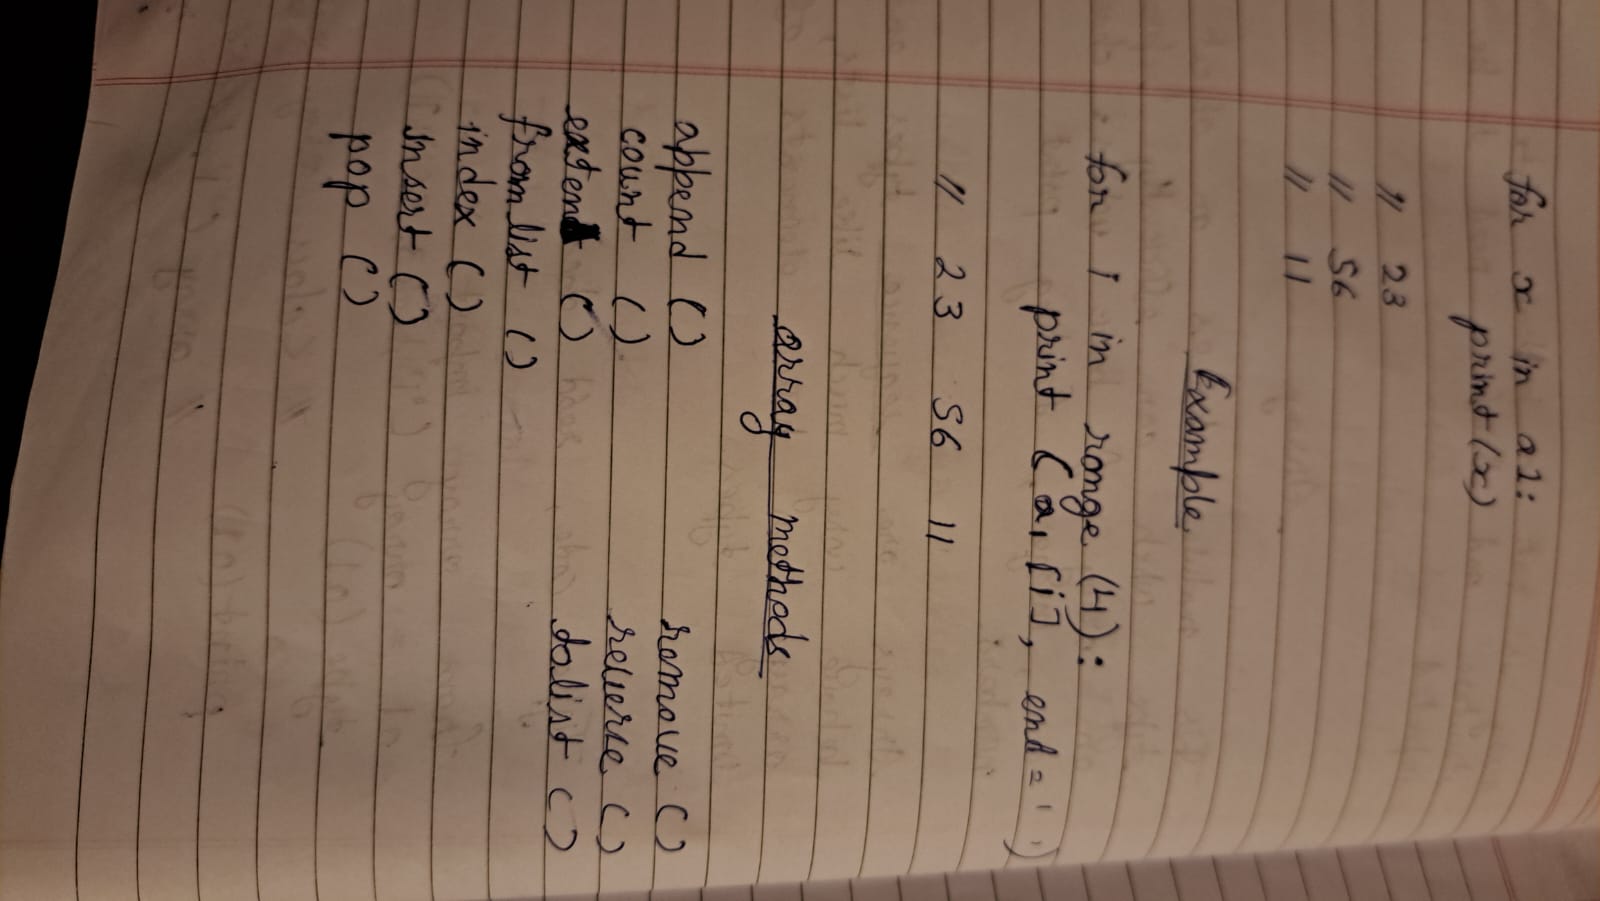 for x in a1:
print(x)
// 23
// 56
// 11
Example
for i in range (4):
print (a1[i], end=' ')
// 23 56 11
array methods
append ()
count ()
extend ()
fromlist ()
index ()
Insert ()
pop ()
remove ()
reverse ()
tolist ()